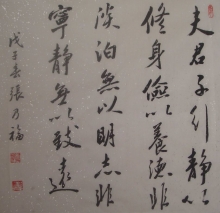 夫君子行静以
修身儉以養德非
淡泊無以明志非
寧静無以致遠
戊子春張乃福